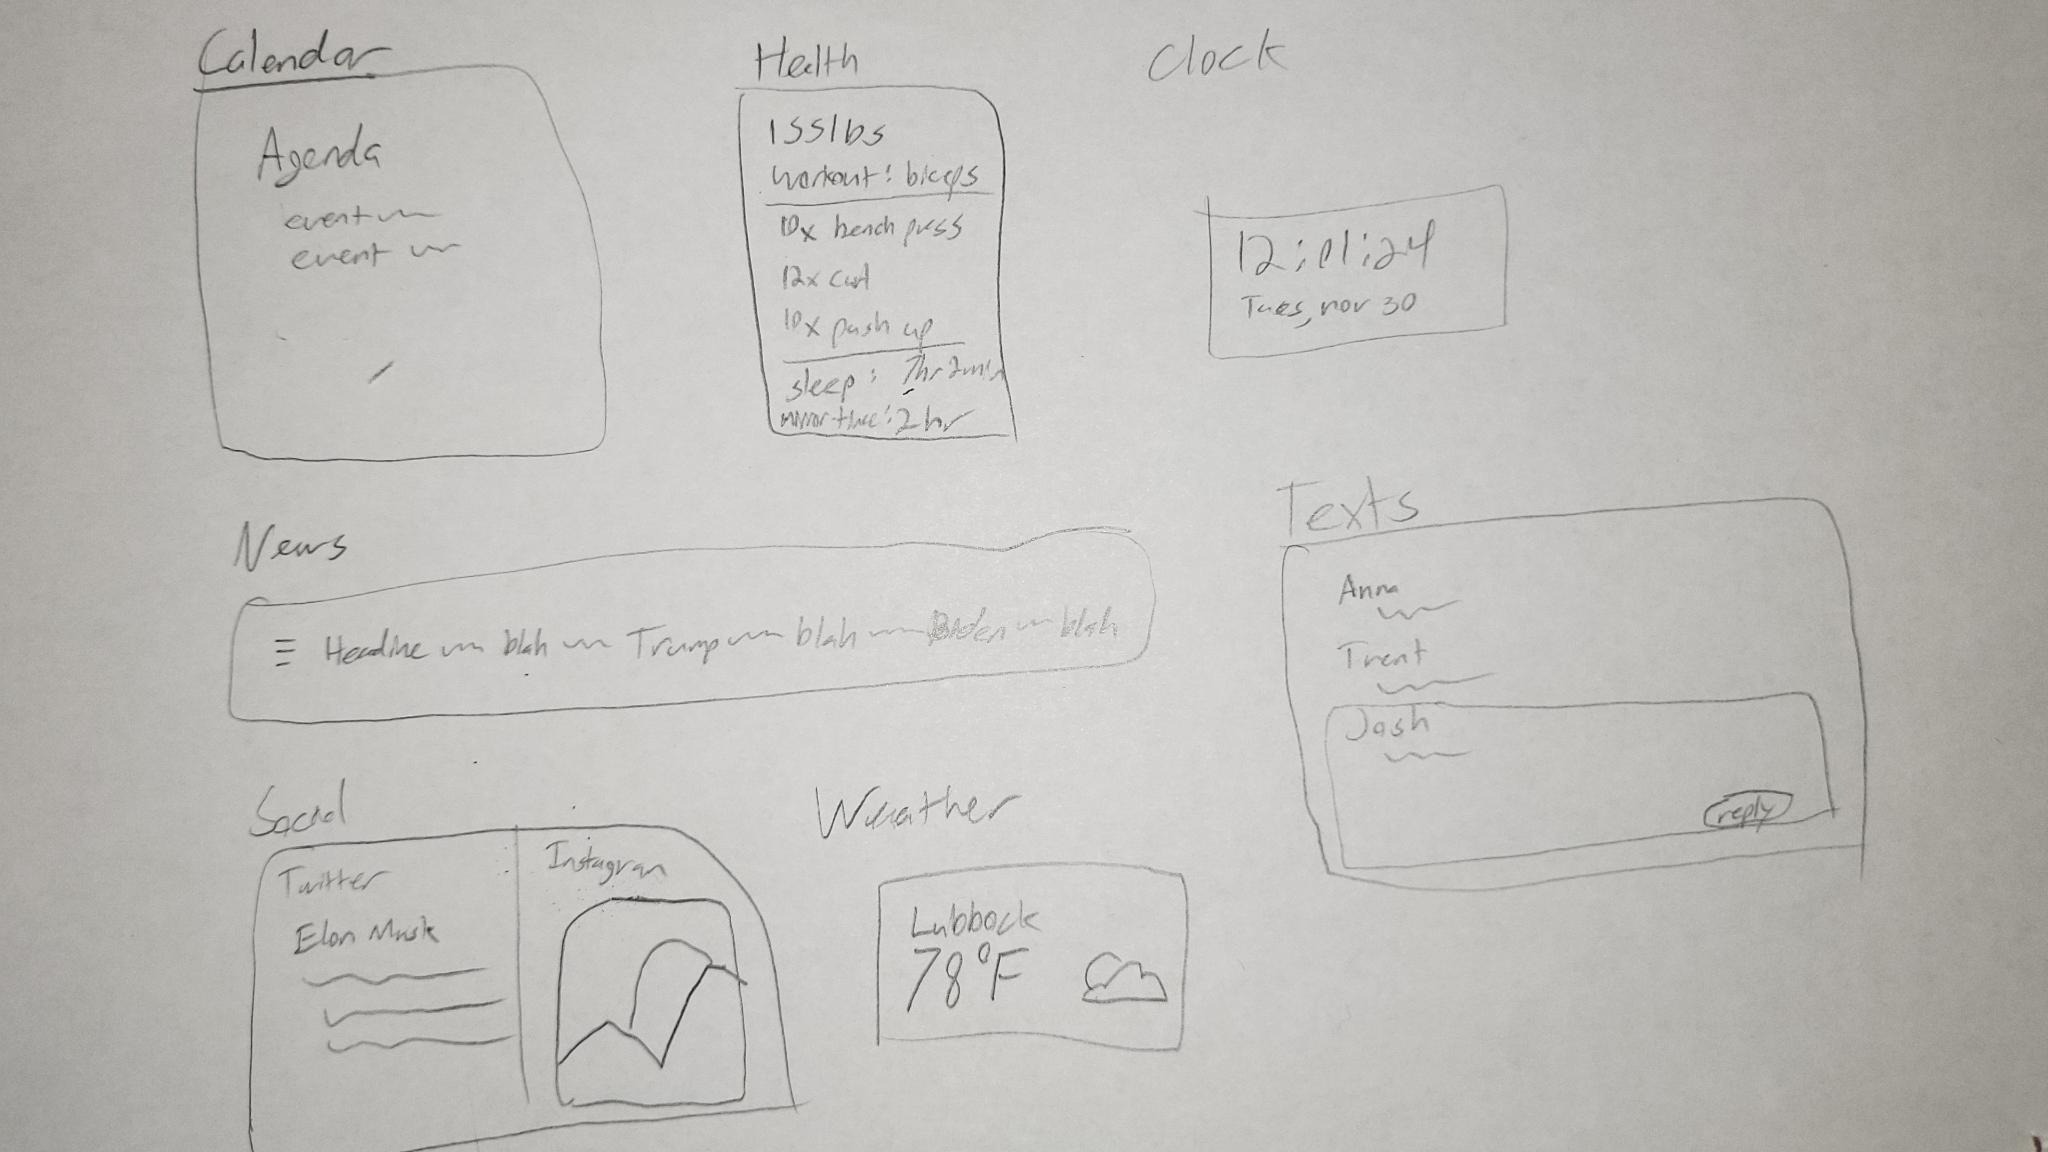 Calendar
Agenda
event
event
Health
155lbs
workout: biceps
10x bench press
12x curl
10x push up
sleep: 7hr 2min
mirror time: 2hr
Clock
12:01:24
Tues, nov 30
News
Headline blah Trump blah Biden blah
Texts
Anna
Trent
Josh
reply
Social
Twitter
Elon Musk
Instagram
Weather
Lubbock
78°F